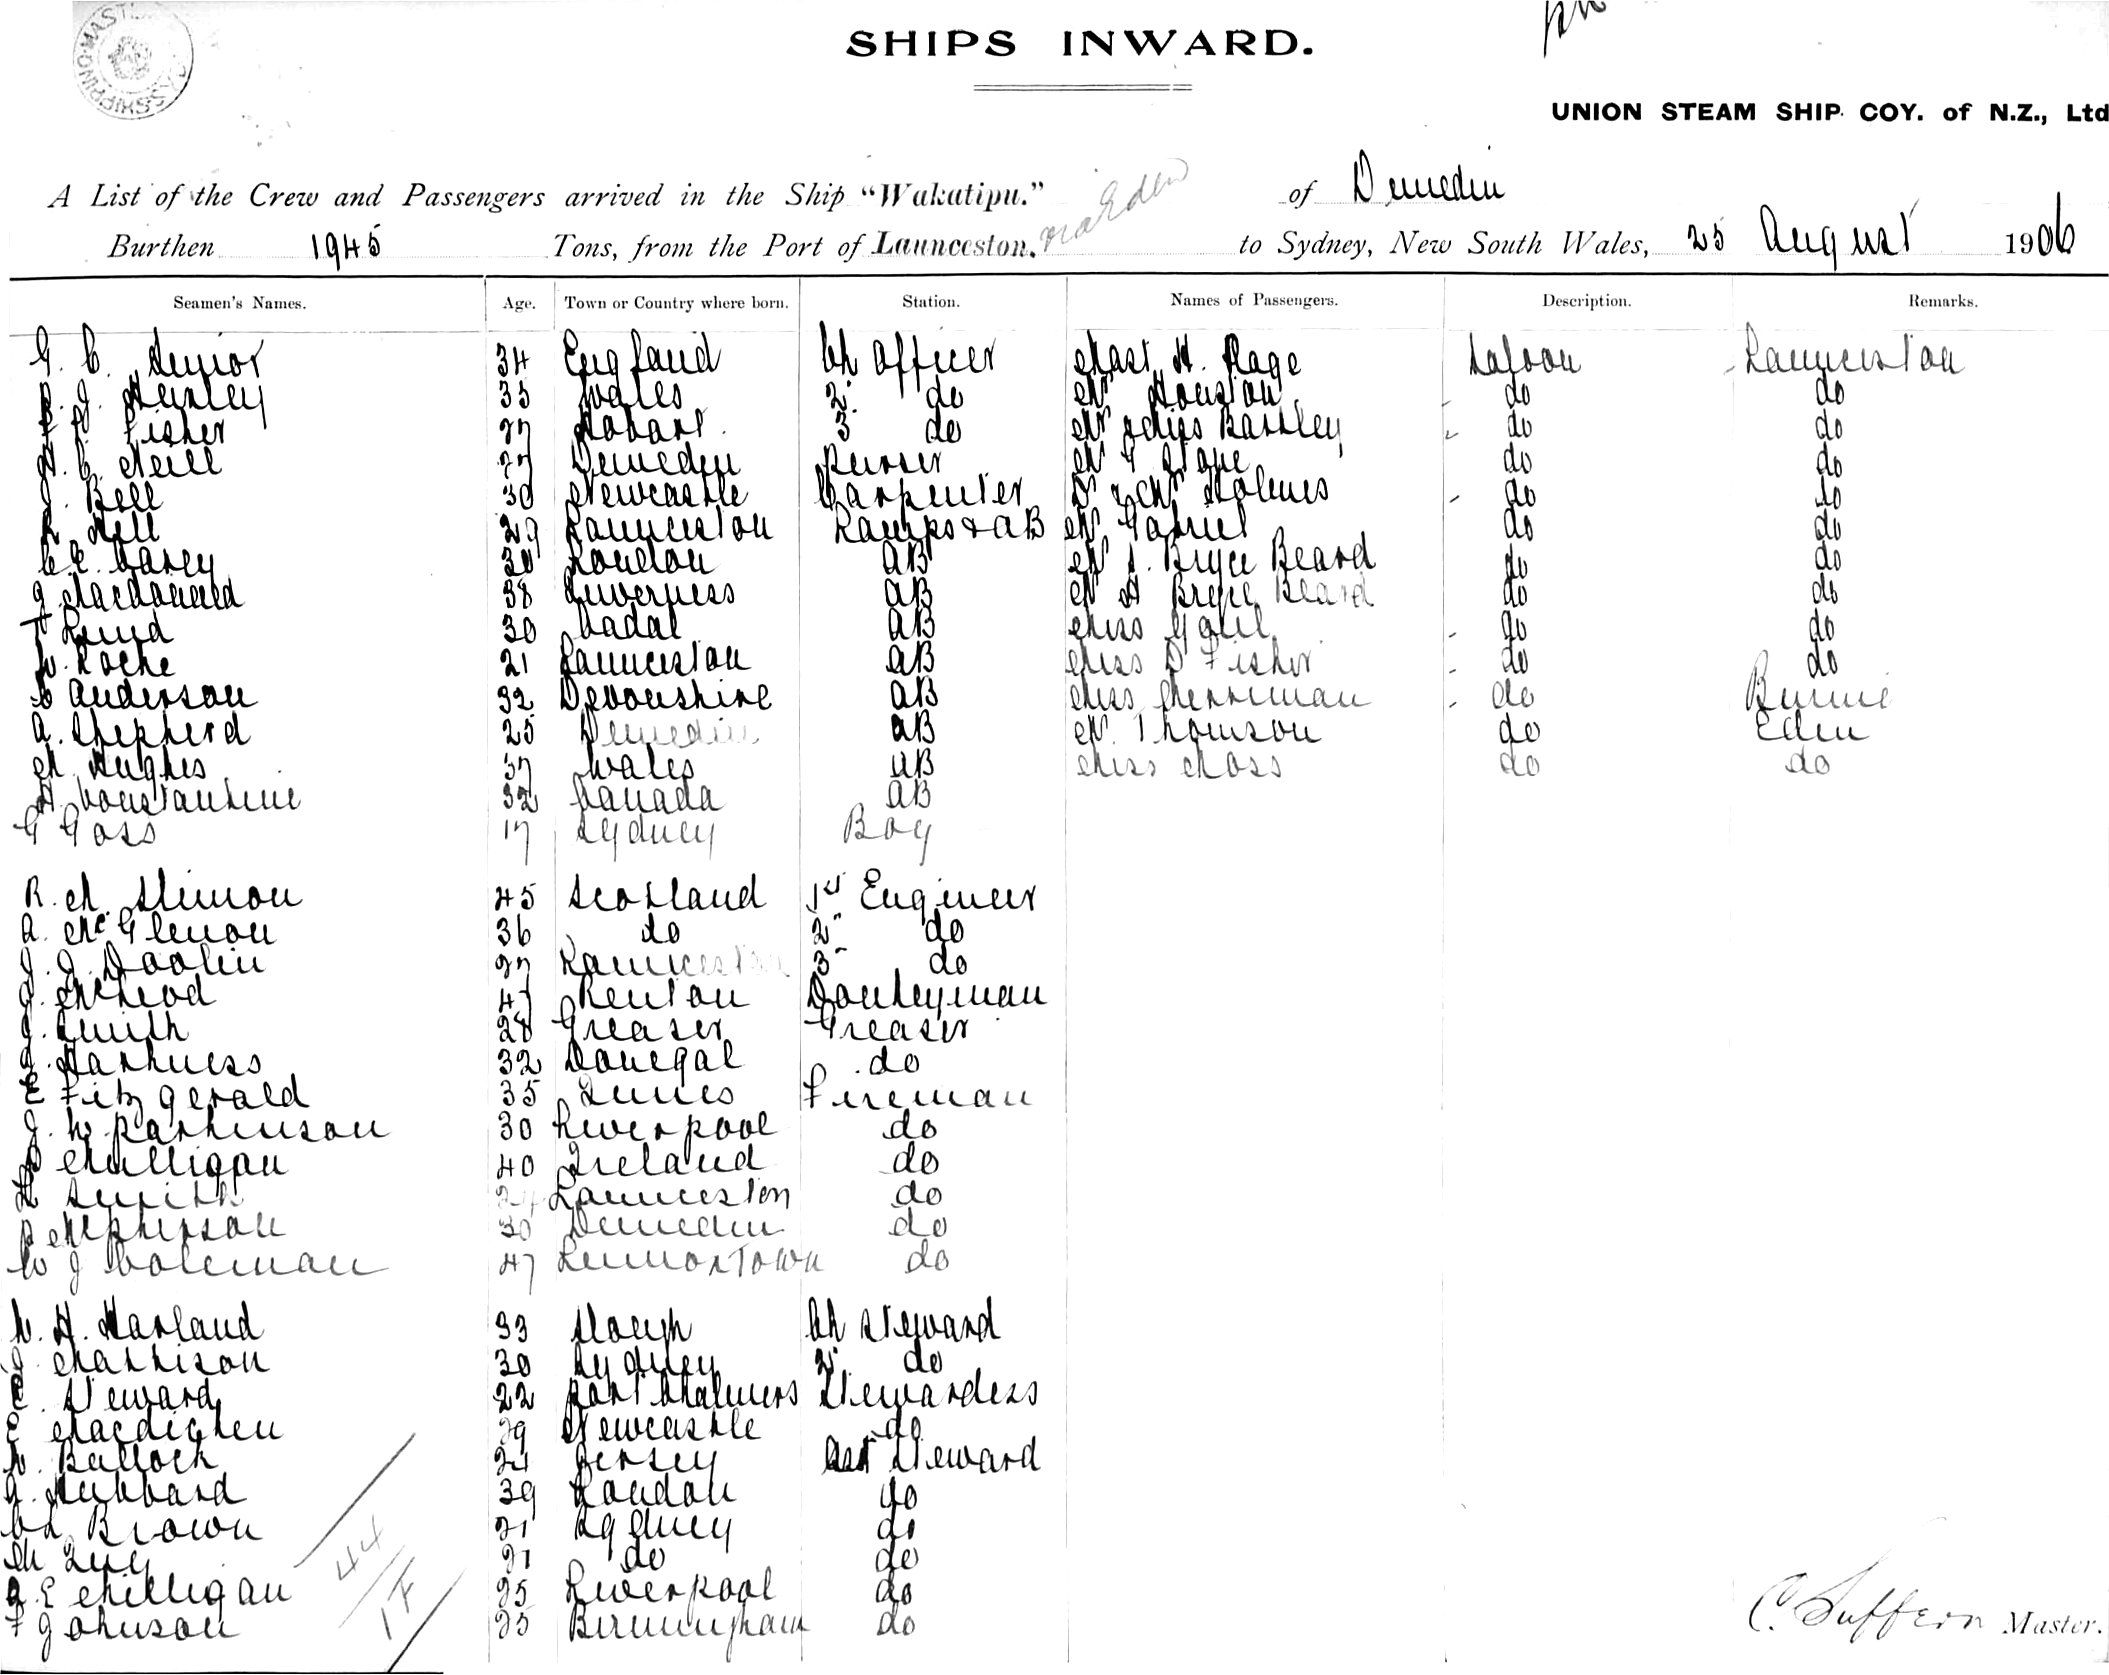 SHIPS INWARD.
UNION STEAM SHIP COY. of N.Z., Ltd
A List of the Crew and Passengers arrived in the Ship "Wakatipu." of Dunedin
Burthen 1945 Tons, from the Port of Launceston. via Eden to Sydney, New South Wales, 25 August 1906
Seamen's Names. Age. Town or Country where born. Station. Names of Passengers. Description. Remarks.
G. C. Senior 34 England Ch Officer Mast. H. Page Saloon Launceston
Henley 35 Wales 2" do Mr Houston do do
Fisher 27 Hobart 3" do Mr & Miss Bartley do do
H. C. Neill 27 Dunedin Purser Mr do do
J. Bell 30 Newcastle Carpenter Dr & Mrs Holmes do do
R. Hill 29 Launceston Lamps & AB Mr Gabriel do do
C. E. Carey 30 London AB Mr Bryce Beard do do
J Macdonald 38 Inverness AB Mr A Bryce Beard do do
T Lund 30 AB Miss Gail do do
W. Roche 21 Launceston AB Miss D Fisher do do
C Anderson 32 Devonshire AB Miss Merriman do Burnie
A. Shepherd 25 Dunedin AB Mr. Thomson do Eden
M. Hughes 37 Wales AB Miss Moss do do
H. Constantine 32 Canada AB
G Goss 17 Sydney Boy
R. M. Slimon 45 Scotland 1st Engineer
A. McGlenon 36 do 2" do
J. J. Doolin 27 Launceston 3" do
J. McLeod 47 Renton Donkeyman
J. Smith 28 Greaser Greaser
Harkness 32 Donegal do
E Fitzgerald 35 Fireman
J. W. Parkinson 30 Liverpool do
Mulligan 40 Ireland do
Smith 24 Launceston do
P McPherson 30 Dunedin do
W J Coleman 47 do
W. H. Harland 33 Slough Ch Steward
J. Marrison 30 Sydney 2" do
E. Steward 22 Port Chalmers Stewardess
E 29 Newcastle do
W. Bullock 24 Jersey Asst Steward
A. Hubbard 39 London do
Brown 21 Sydney do
M 21 do do
A E Milligan 25 Liverpool do
F Johnson 25 Birmingham do
44
17
C. Suffern Master.